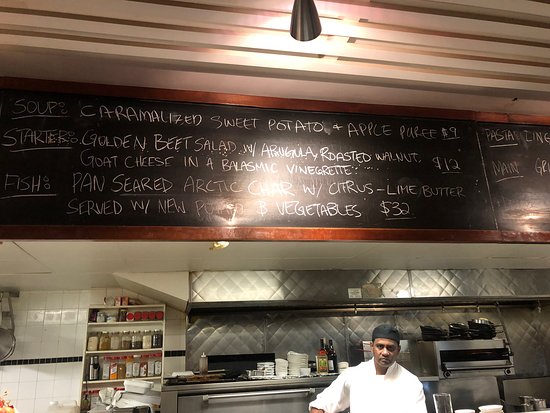 SOUP: CARAMALIZED SWEET POTATO & APPLE PUREE $9
STARTER: GOLDEN BEET SALAD W/ ARUGULA, ROASTED WALNUT,
GOAT CHEESE IN A BALASMIC VINEGRETTE $12
FISH: PAN SEARED ARCTIC CHAR W/ CITRUS-LIME BUTTER
SERVED W/ NEW & VEGETABLES $32
PASTA: LINE
MAIN GR